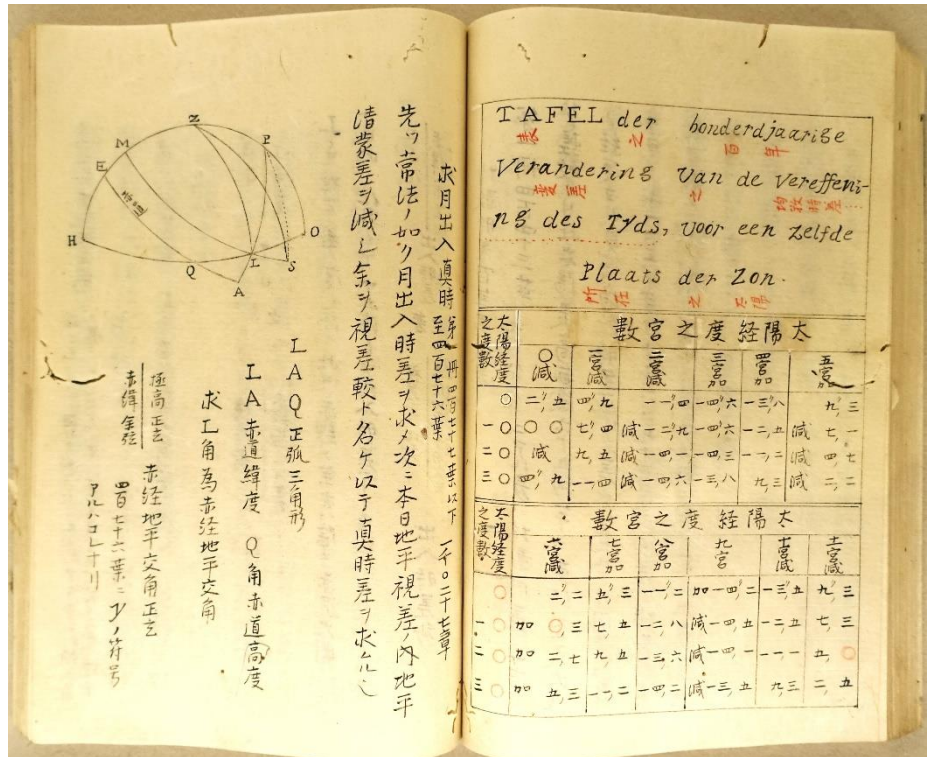 TAFEL der honderdjaarige
表 之 百年
Verandering van de Vereffeni-
変差 之 均数時差
ng des Tyds, voor een zelfde
Plaats der Zon.
所在 之 太陽
太陽経度之宮數
太陽経度之度數 〇宮減 一宮減 二宮減 三宮加 四宮加 五宮加
〇 二″,五 四″,九 一一″,四 一四″,六 一三″,八 九″,三
一〇 〇,〇 七,四 減一二,九 一四,六 一二,五 減七,一
二〇 減 九,五 減一四,一 一四,三 一一,二 減四,七
三〇 四″,九 一一,四 減一四,六 一三,八 九,三 減二,二
太陽経度之宮數
太陽経度之度數 六宮減 七宮加 八宮加 九宮 十宮減 十一宮減
〇 二″,二 五″,三 一一″,二 加一四″,二 一三″,五 九″,三
一〇 加〇,三 七,五 一二,八 減一四,五 一二,五 七,三
二〇 加二,七 九,五 一三,六 減一四,一 一一,一 五,〇
三〇 加五,三 一一,二 一四,二 減一三,五 九,三 二,五
求月出入真時 第一冊四百七十七葉以下 至四百七十六葉 一千〇二十七章
先ツ常法ノ如ク月出入時差ヲ求メ次ニ本日地平視差ノ内地平
清蒙差ヲ減シ余ヲ視差較ト名ケ以テ真時差ヲ求ムルヿ
Z
M
P
E
赤道
H
O
Q
I
S
A
I A Q 正弧三角形
I A 赤道緯度 Q角赤道高度
求I角為赤経地平交角
極高正玄
赤緯余弦
赤経地平交角正玄
四百七十六葉ニ ノ符号
アルハコレナリ